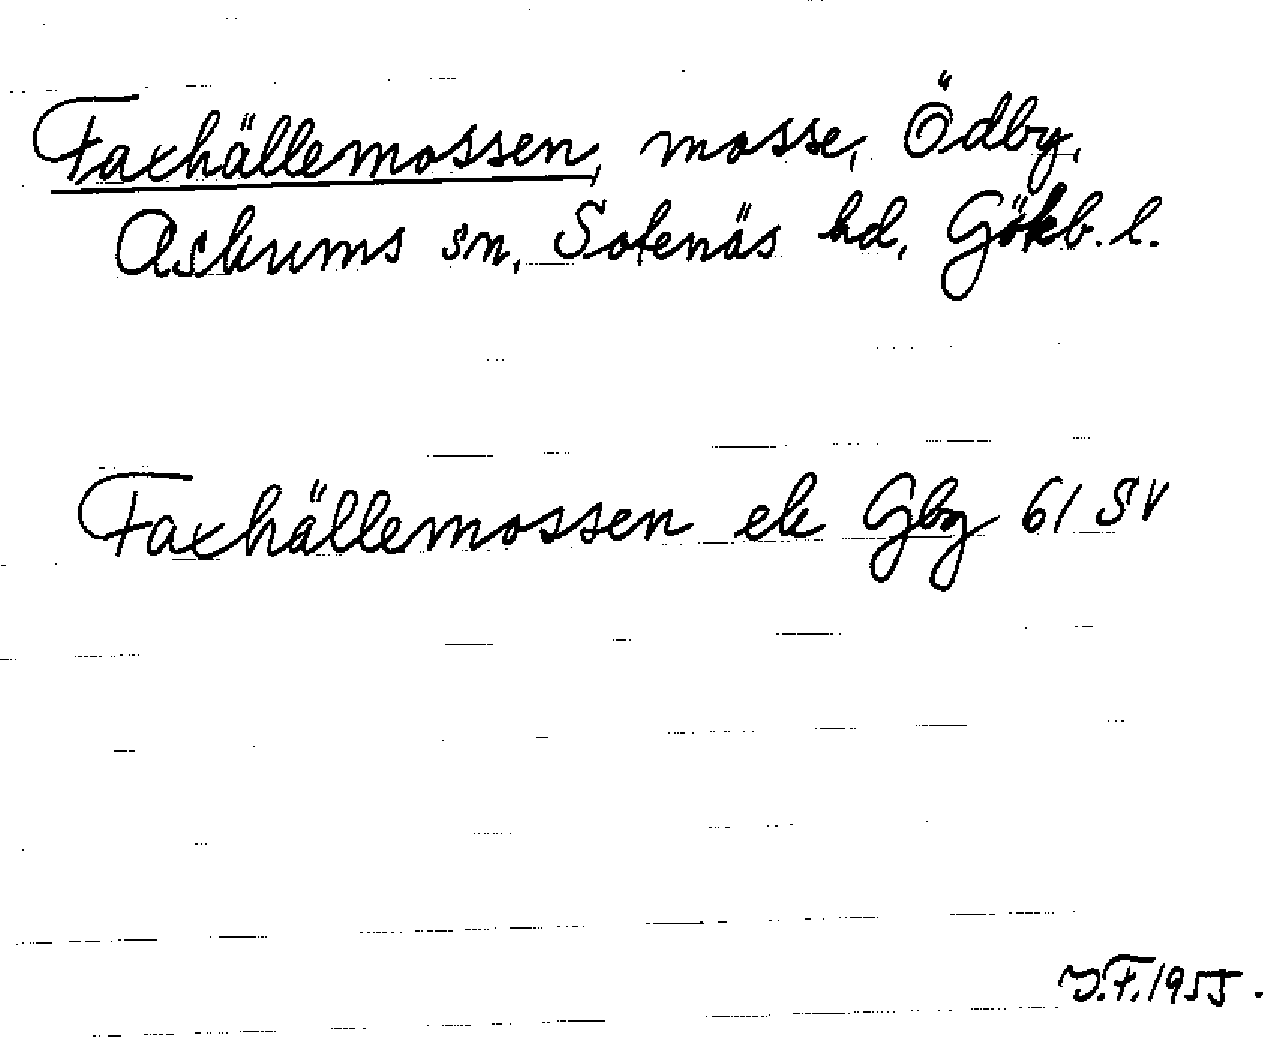 Faxhällemossen, mosse, Ödby,
Askums sn, Sotenäs hd, Gökb. l.
Faxhällemossen ek Gbg 61 SV
J.F. 1955.